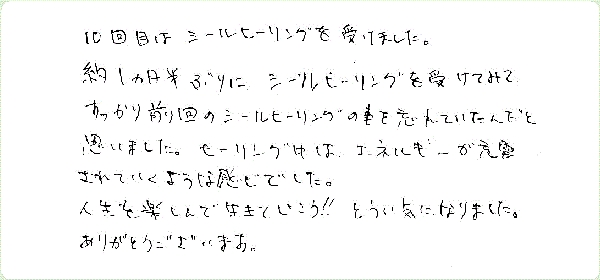 10回目はシールヒーリングを受けました。
約1カ月半ぶりに、シールヒーリングを受けてみて
すっかり前回のシールヒーリングの事を忘れていたんだと
思いました。ヒーリング中は、エネルギーが充電
されていくような感じでした。
人生を楽しんで生きていこう!! そういう気になりました。
ありがとうございます。